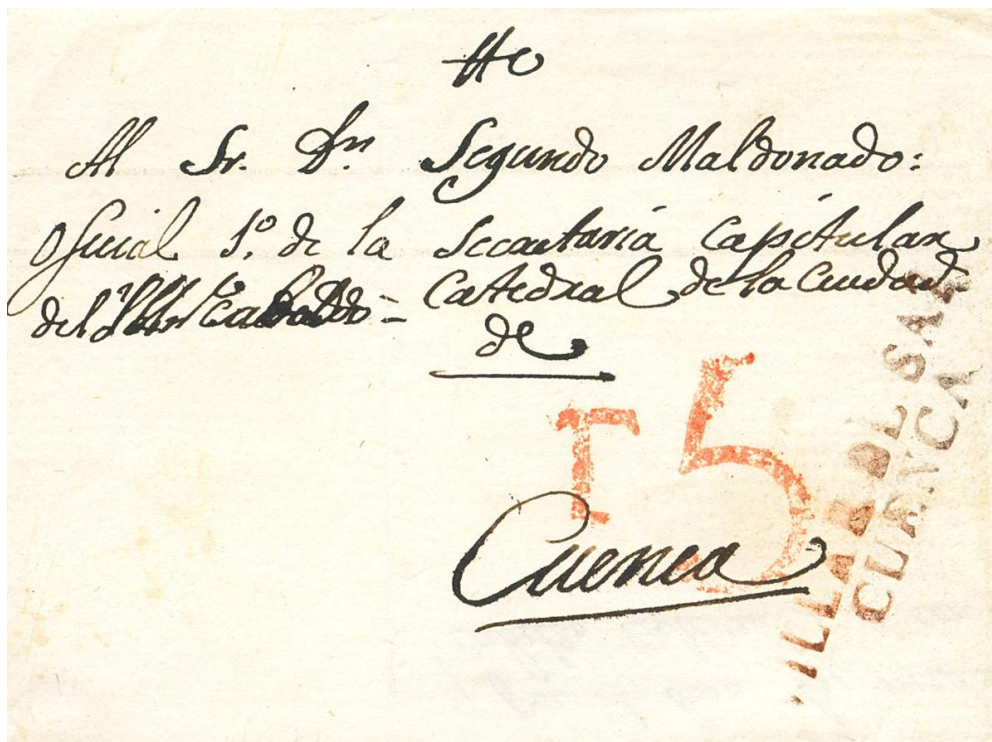 Al Sr. Dn Segundo Maldonado:
Oficial 1º. de la Secretaría Capitular
del Cabildo = Catedral de la Ciudad
de
15
Cuenca